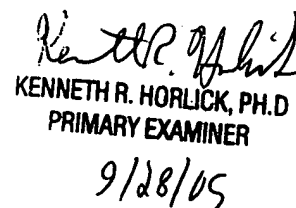 Kenneth R. Horlick
KENNETH R. HORLICK, PH.D
PRIMARY EXAMINER
9/28/05